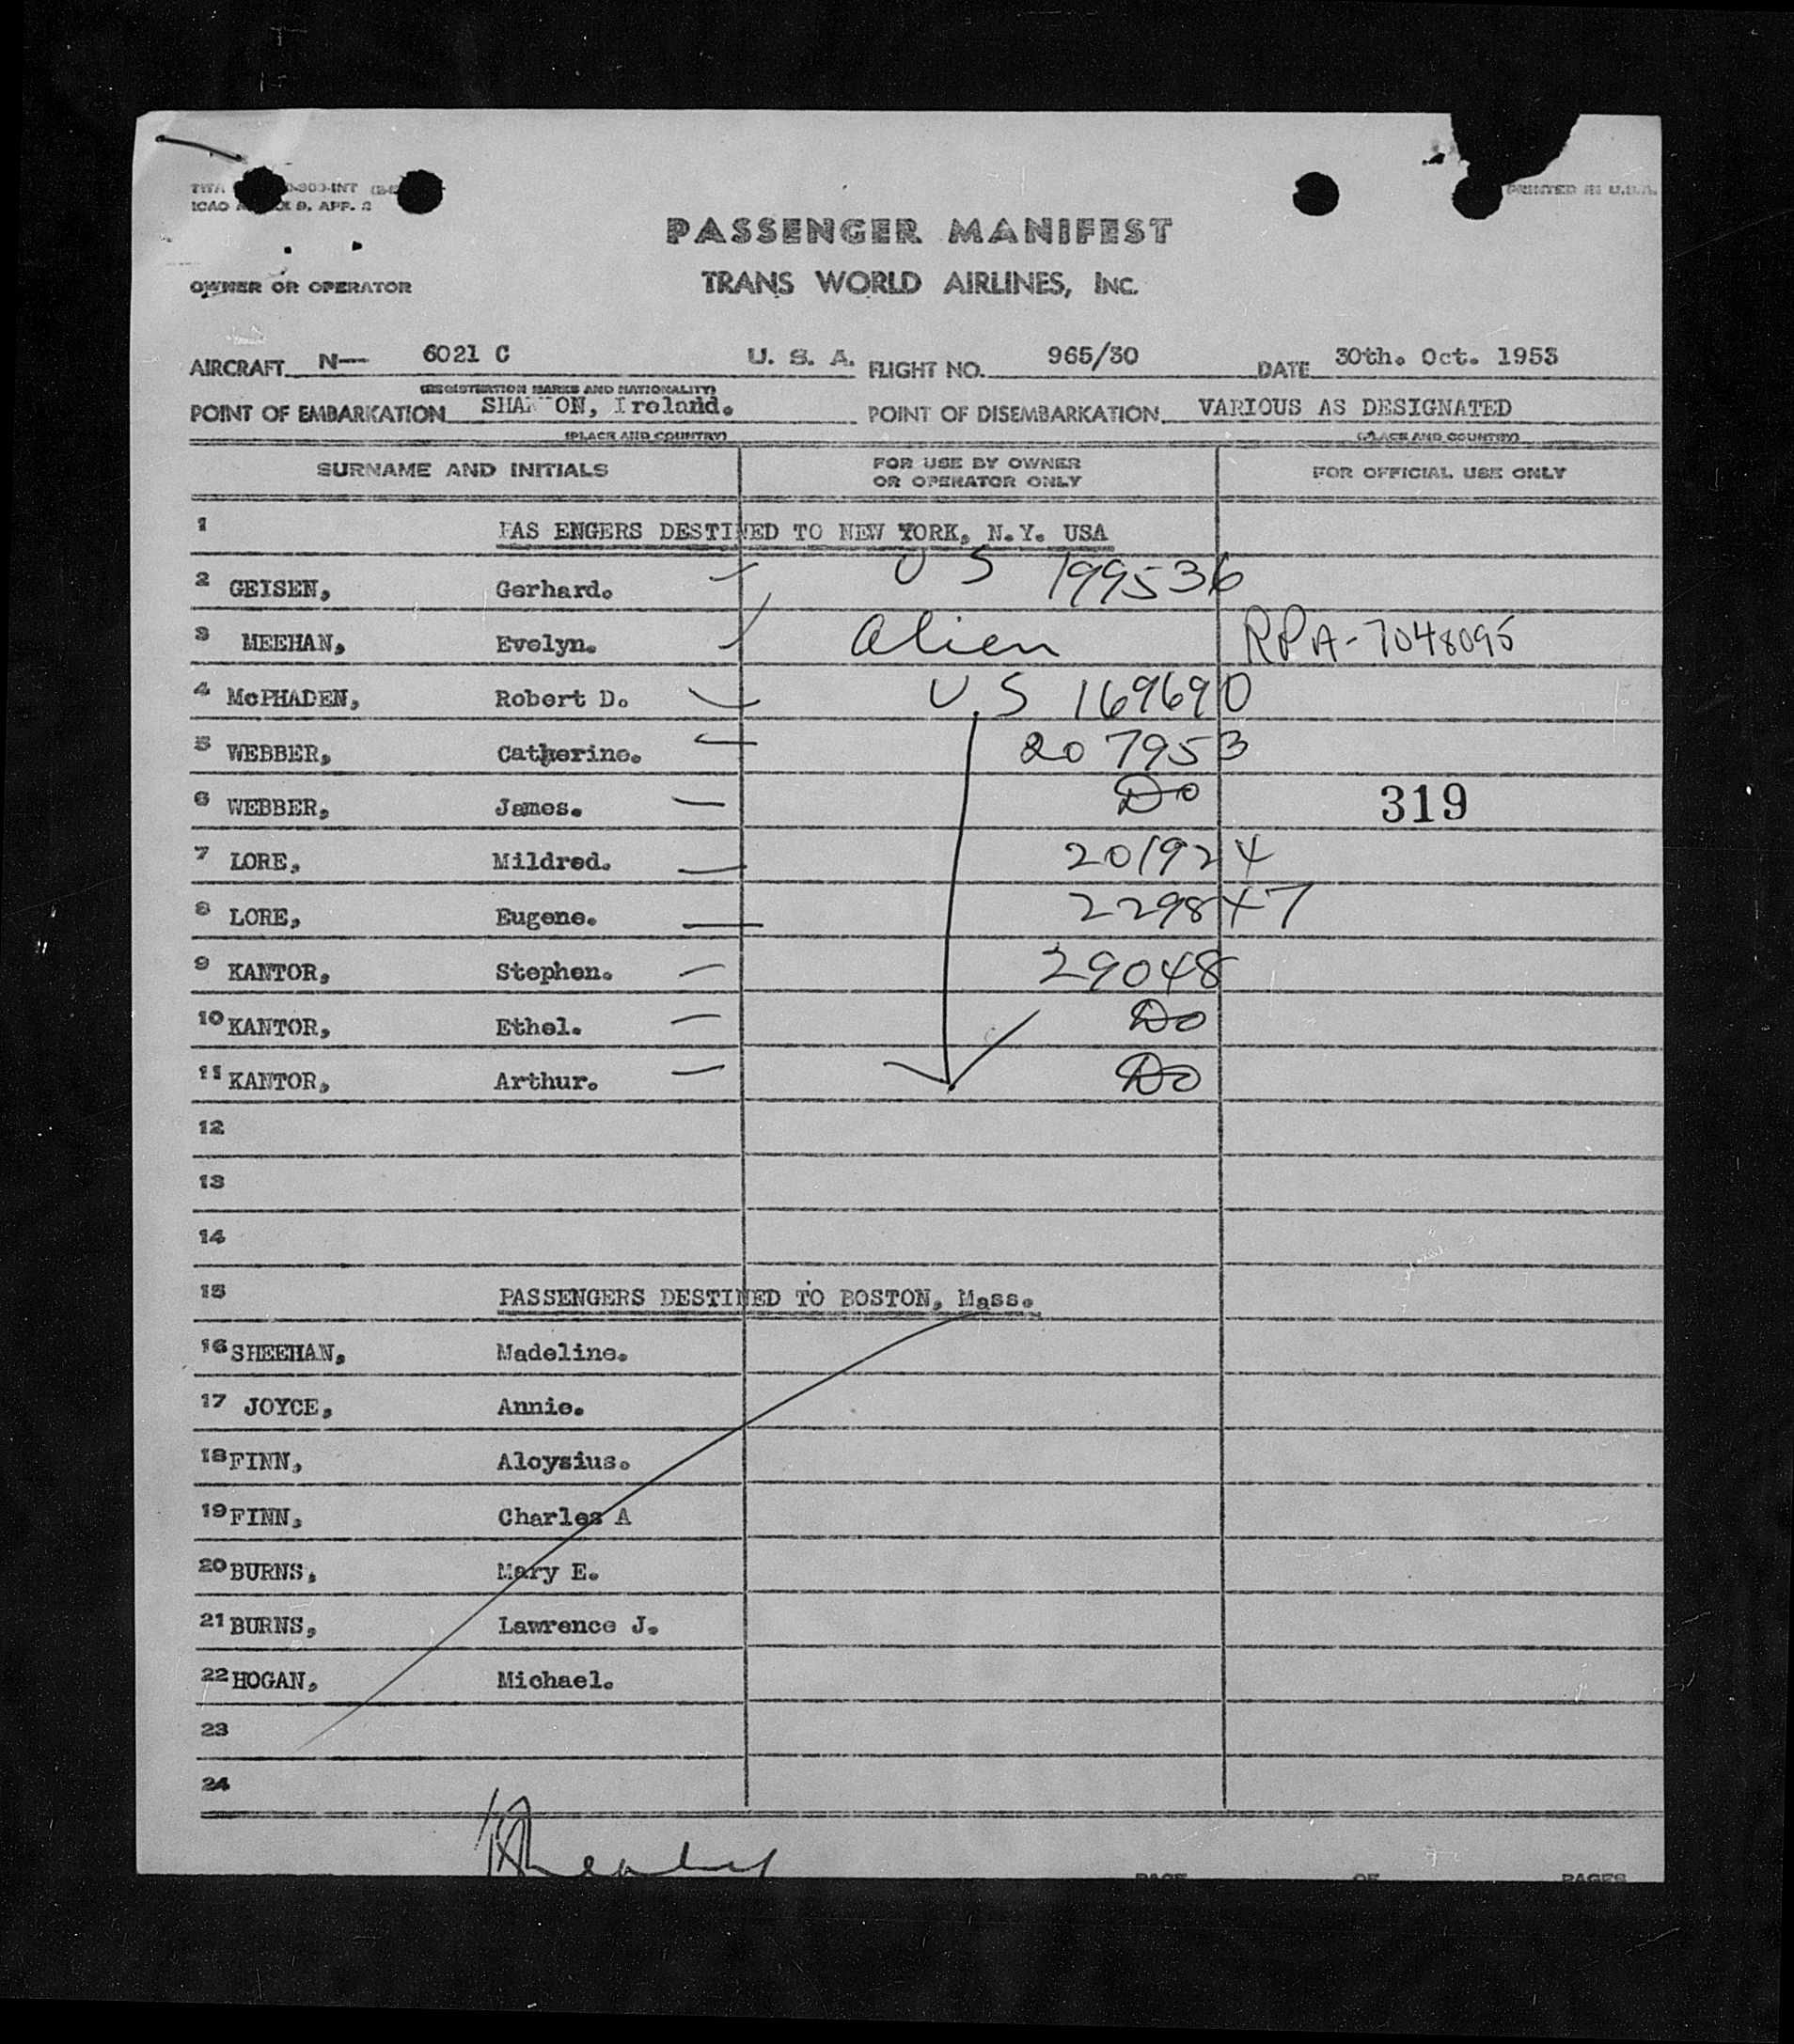 PRINTED IN U.S.A.
ICAO
9, APP. 2
PASSENGER MANIFEST
OWNER OR OPERATOR
TRANS WORLD AIRLINES, INC.
AIRCRAFT N— 6021 C U. S. A. FLIGHT NO. 965/30 DATE 30th. Oct. 1953
(REGISTRATION MARKS AND NATIONALITY)
POINT OF EMBARKATION SHA ON, Ireland. POINT OF DISEMBARKATION VARIOUS AS DESIGNATED
(PLACE AND COUNTRY) (PLACE AND COUNTRY)
SURNAME AND INITIALS FOR USE BY OWNER OR OPERATOR ONLY FOR OFFICIAL USE ONLY
1 PAS ENGERS DESTINED TO NEW YORK, N.Y. USA
2 GEISEN, Gerhard. U S 199536
3 MEEHAN, Evelyn. alien RPA-7048095
4 McPHADEN, Robert D. U.S 169690
5 WEBBER, Catherine. 207953
6 WEBBER, James. Do 319
7 LORE, Mildred. 201924
8 LORE, Eugene. 229847
9 KANTOR, Stephen. 29048
10 KANTOR, Ethel. Do
11 KANTOR, Arthur. Do
12
13
14
15 PASSENGERS DESTINED TO BOSTON, Mass.
16 SHEEHAN, Madeline.
17 JOYCE, Annie.
18 FINN, Aloysius.
19 FINN, Charles A
20 BURNS, Mary E.
21 BURNS, Lawrence J.
22 HOGAN, Michael.
23
24
PAGE OF PAGES